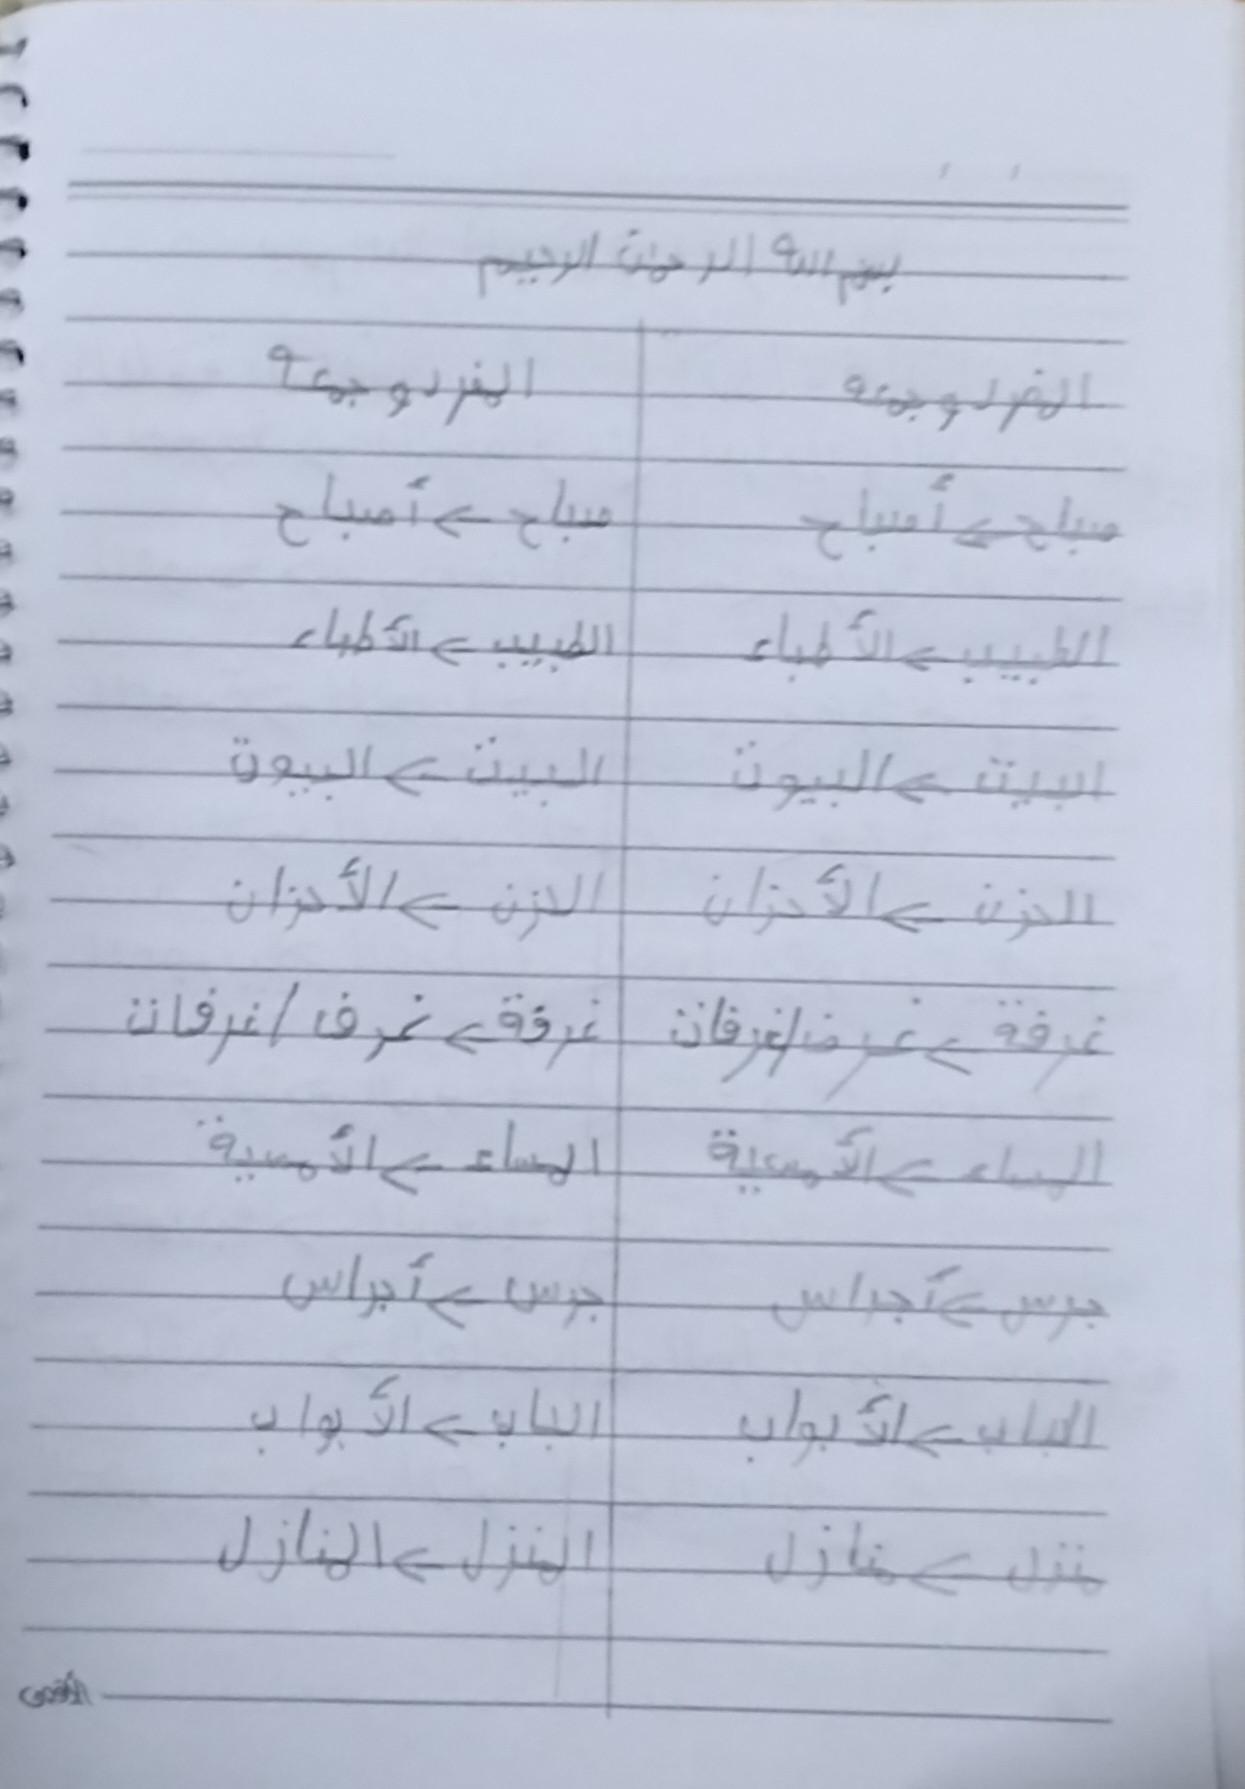 بسم الله الرحمن الرحيم
المفرد وجمعه المفرد وجمعه
صباح > أصباح صباح > أصباح
الطبيب > الأطباء الطبيب > الأطباء
البيت > البيوت البيت > البيوت
الحزن > الأحزان الحزن > الأحزان
غرفة > غرف/غرفات غرفة > غرف/غرفات
المساء > الأمسية المساء > الأمسية
جرس > أجراس جرس > أجراس
الباب > الأبواب الباب > الأبواب
منزل > منازل المنزل > المنازل
الأقصى